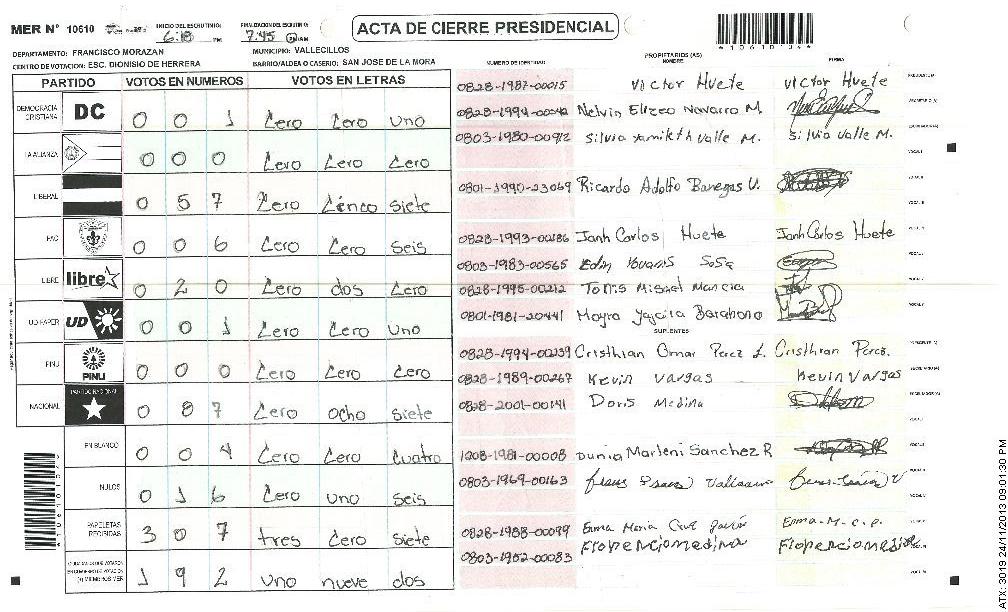 MER Nº 10610 INICIO DEL ESCRUTINIO: 6:18 PM FINALIZACION DEL ESCRUTINIO: 7:45 ACTA DE CIERRE PRESIDENCIAL
DEPARTAMENTO: FRANCISCO MORAZAN MUNICIPIO: VALLECILLOS
CENTRO DE VOTACION: ESC. DIONISIO DE HERRERA BARRIO/ALDEA O CASERIO: SAN JOSE DE LA MORA
PARTIDO VOTOS EN NUMEROS VOTOS EN LETRAS
DEMOCRACIA CRISTIANA DC 0 0 1 Cero Cero uno
LA ALIANZA 0 0 0 Cero Cero Cero
LIBERAL 0 5 7 Cero Cinco siete
PAC 0 0 6 Cero Cero seis
LIBRE libre 0 2 0 Cero dos Cero
UD FAPER UD 0 0 1 Cero Cero uno
PINU PINU 0 0 0 Cero Cero Cero
NACIONAL PARTIDO NACIONAL 0 8 7 Cero ocho siete
EN BLANCO 0 0 4 Cero Cero Cuatro
NULOS 0 1 6 Cero uno seis
PAPELETAS RECIBIDAS 3 0 7 tres Cero siete
MIEMBROS MER 1 9 2 uno nueve dos
NUMERO DE IDENTIDAD PROPIETARIOS (AS) NOMBRE FIRMA
0828-1987-00015 Victor Huete Victor Huete
0828-1994-00042 Nelvin Elizeo Navarro M.
0803-1980-00912 Silvia Yamileth Valle M. Silvia Valle M.
0801-1990-23069 Ricardo Adolfo Banegas V.
0828-1993-00186 Janh Carlos Huete Janh Carlos Huete
0803-1983-00565 Edin Sosa
0828-1995-00212 Misael Mancia
0801-1981-20441 Mayra Barahona
SUPLENTES
0828-1994-00239 Cristhian Omar Perez L. Cristhian Perez.
0828-1989-00267 Kevin Vargas Kevin Vargas
0828-2001-00141 Doris Medina
1208-1981-00008 Dunia Marleni Sanchez R
0803-1969-00163
0828-1988-00099 Erma Maria Cruz Erma-M-C-P.
0803-1952-00083 Florenciomedina Florenciomedina
ATX 3019 24/11/2013 09:01:30 PM